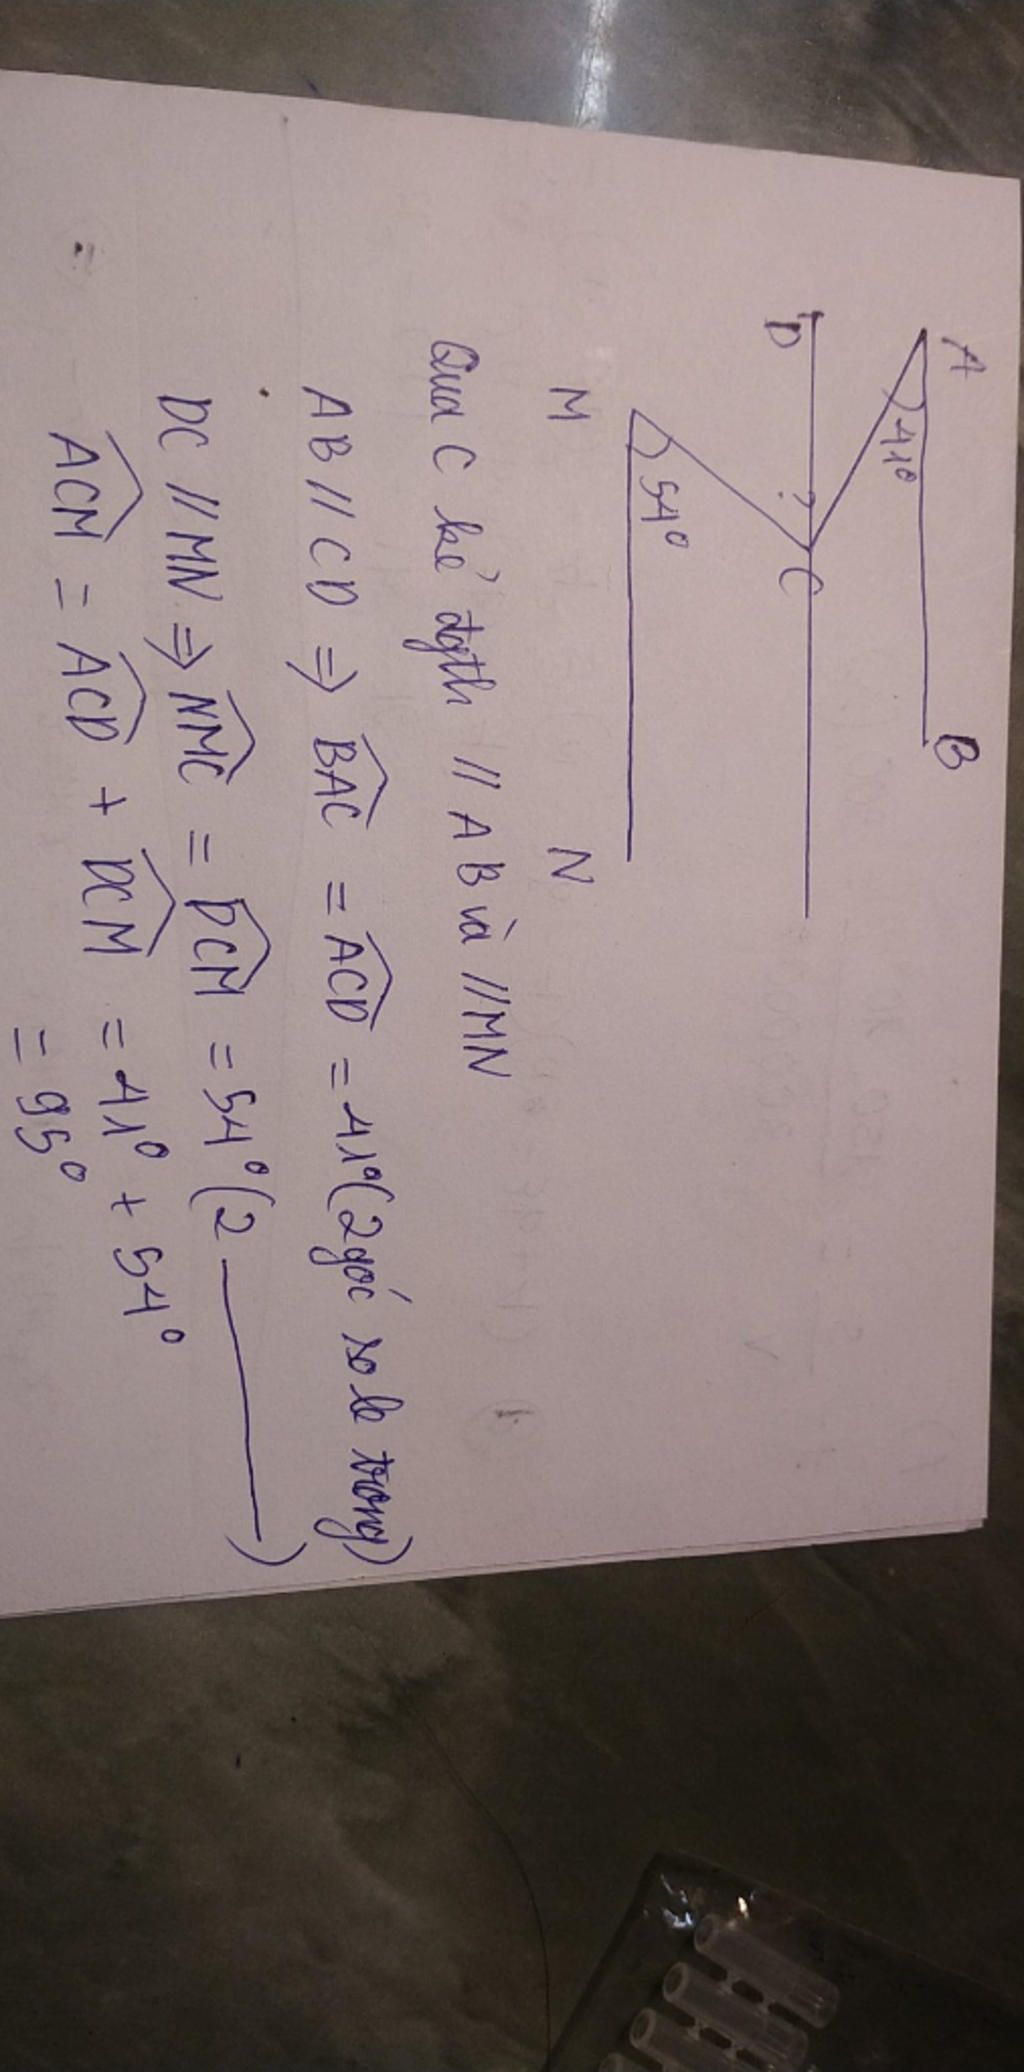 A
B
41°
D
?
C
54°
M
N
Qua C kẻ đgth // AB và // MN
AB // CD ⇒ \widehat{BAC} = \widehat{ACD} = 41° (2 góc so le trong)
DC // MN ⇒ \widehat{NMC} = \widehat{DCM} = 54° (2 ———)
\widehat{ACM} = \widehat{ACD} + \widehat{DCM} = 41° + 54°
= 95°